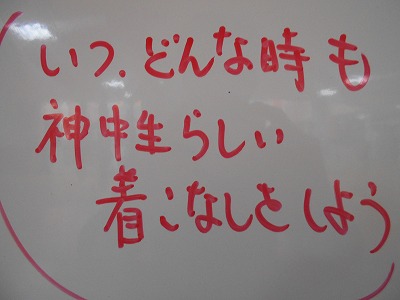 いつ、どんな時も
神中生らしい
着こなしをしよう